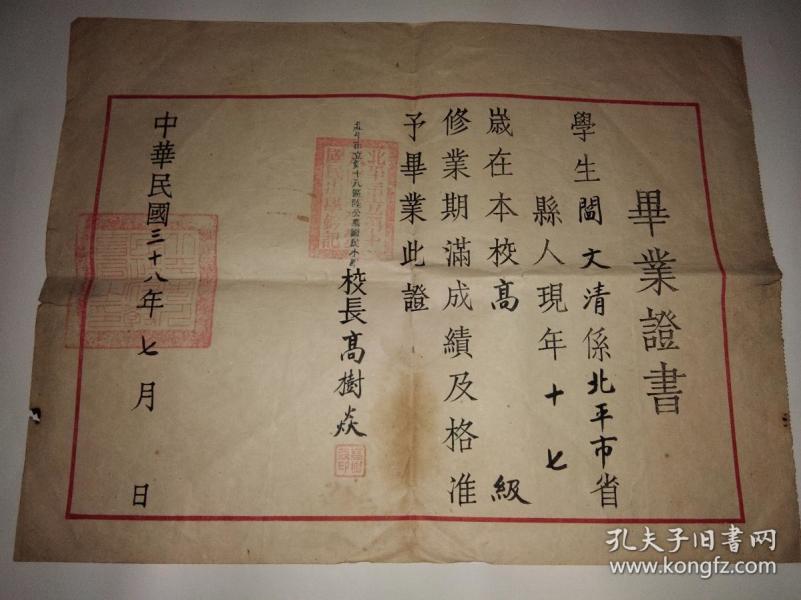 畢業證書
學生閻文清係北平市省
縣人現年十七
歲在本校高級
修業期滿成績及格准
予畢業此證
校長高樹焱
中華民國三十八年七月日
孔夫子旧书网
www.kongfz.com